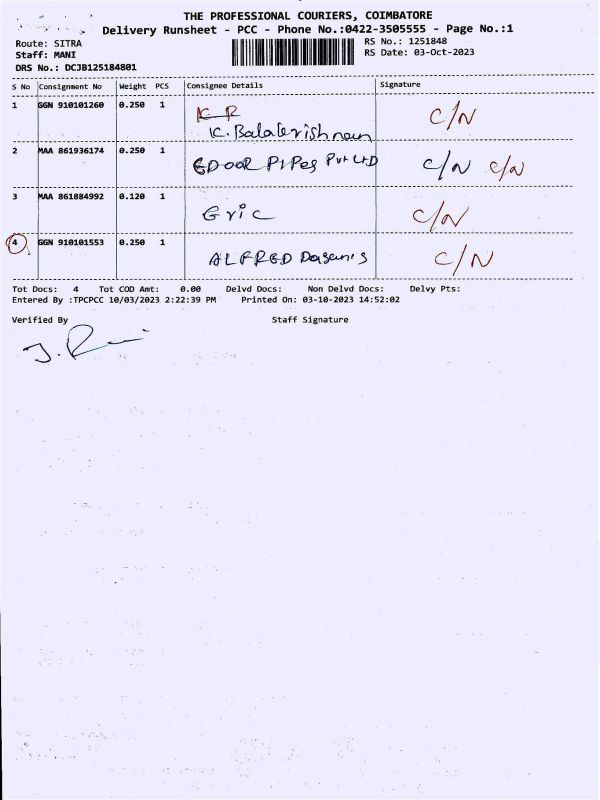 THE PROFESSIONAL COURIERS, COIMBATORE
Delivery Runsheet - PCC - Phone No.:0422-3505555 - Page No.:1
Route: SITRA RS No.: 1251848
Staff: MANI RS Date: 03-Oct-2023
DRS No.: DCJB125184801
S No Consignment No Weight PCS Consignee Details Signature
1 GGN 910101260 0.250 1 K R C/N
K. Balakrishnan
2 MAA 861936174 0.250 1 EDOOR PIPes Pvt LtD C/N C/N
3 MAA 861884992 0.120 1 Gric C/N
4 GGN 910101553 0.250 1 ALFRED C/N
Tot Docs: 4 Tot COD Amt: 0.00 Delvd Docs: Non Delvd Docs: Delvy Pts:
Entered By :TPCPCC 10/03/2023 2:22:39 PM Printed On: 03-10-2023 14:52:02
Verified By Staff Signature